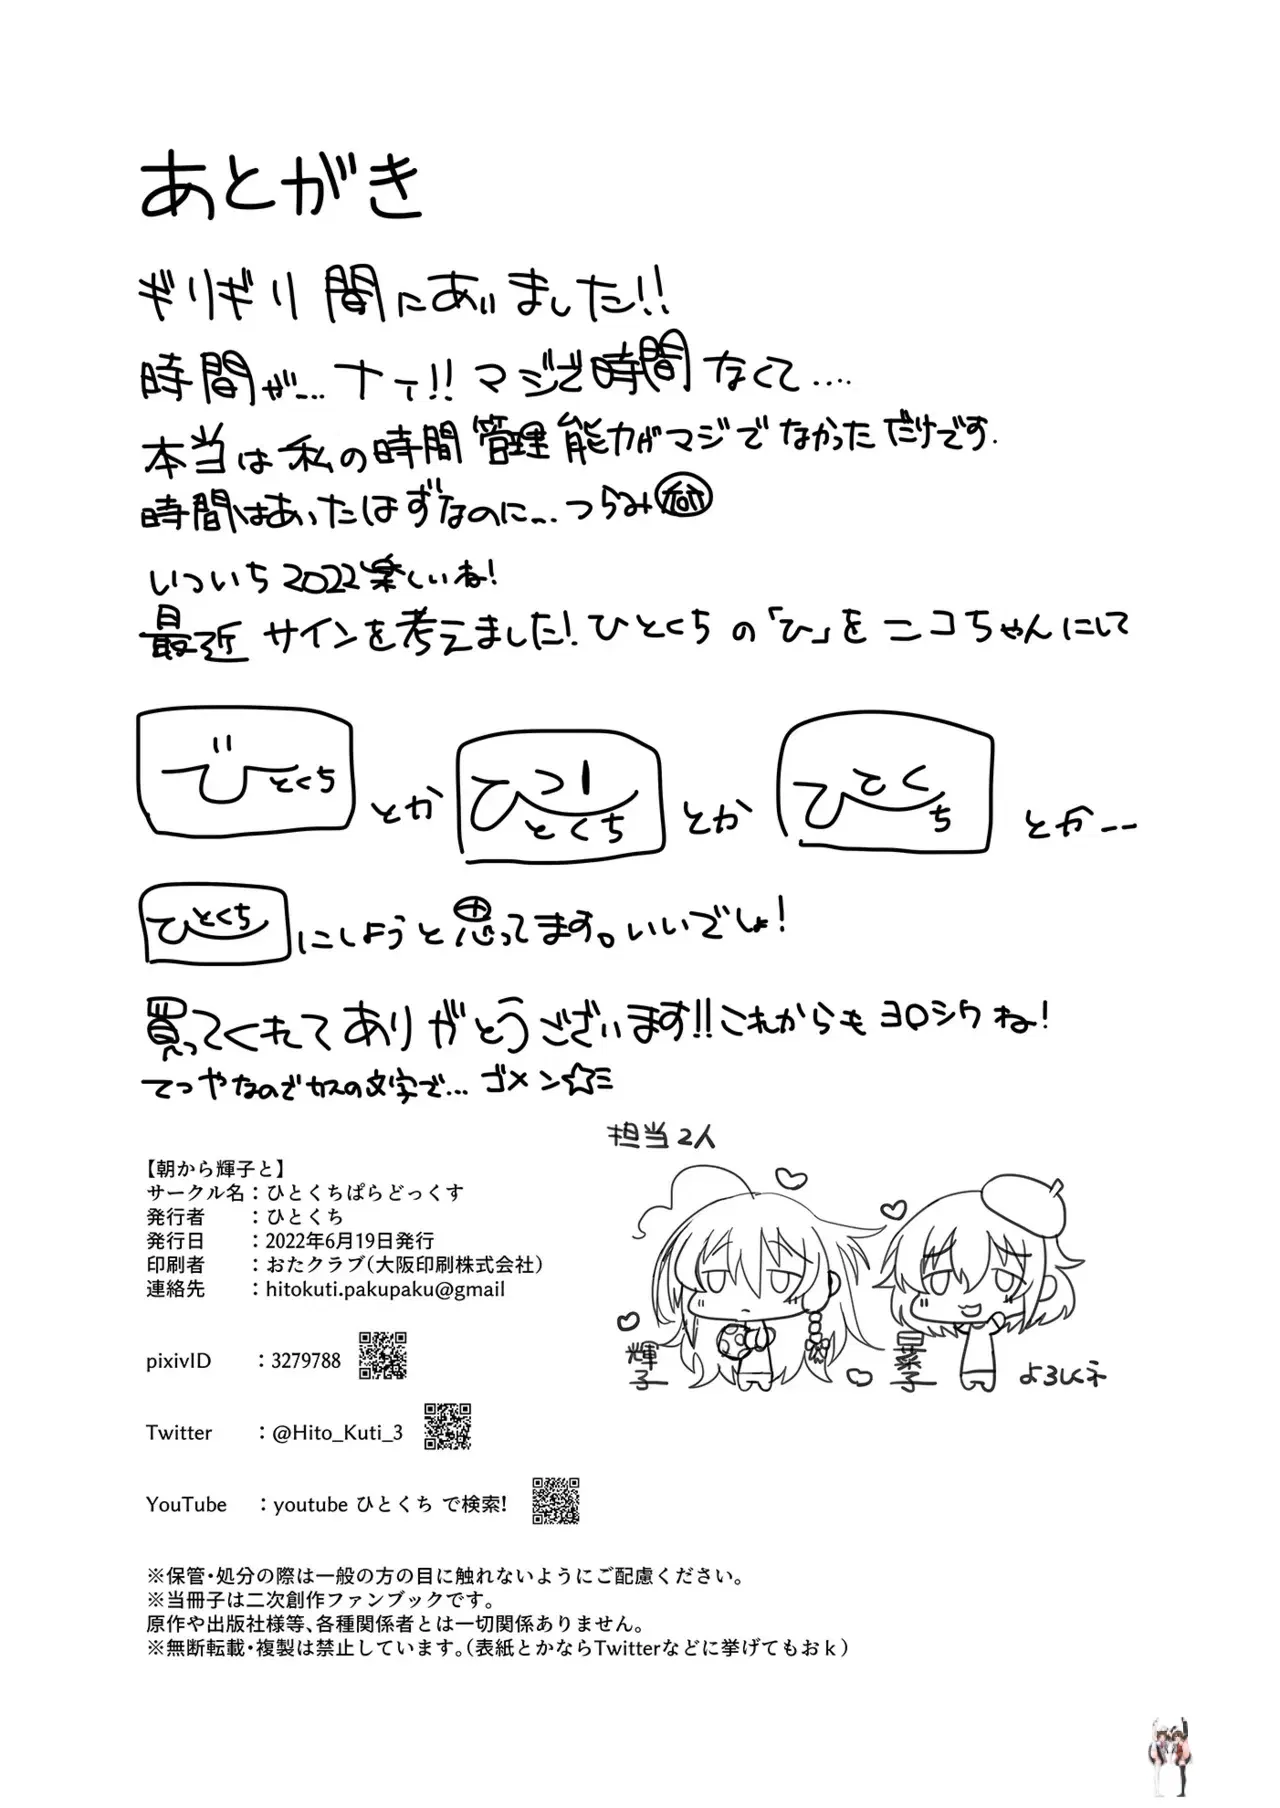 あとがき
ギリギリ間にあいました!!
時間が...ナイ!!マジで時間なくて....
本当は私の時間管理能力がマジでなかっただけです.
時間はあったはずなのに...つらみ
いついち2022楽しいね!
最近サインを考えました!ひとくちの「ひ」をニコちゃんにして
ひとくち とか ひとくち とか ひとくち とか--
ひとくち にしようと思ってます。いいでしょ!
買ってくれてありがとうございます!!これからもヨロシクね!
てつやなのでカスの文字で...ゴメン☆ミ
担当2人
輝子
よろしくネ
【朝から輝子と】
サークル名：ひとくちぱらどっくす
発行者：ひとくち
発行日：2022年6月19日発行
印刷者：おたクラブ(大阪印刷株式会社)
連絡先：hitokuti.pakupaku@gmail
pixivID：3279788
Twitter：@Hito_Kuti_3
YouTube：youtube ひとくち で検索!
※保管・処分の際は一般の方の目に触れないようにご配慮ください。
※当冊子は二次創作ファンブックです。
原作や出版社様等、各種関係者とは一切関係ありません。
※無断転載・複製は禁止しています。(表紙とかならTwitterなどに挙げてもおｋ)